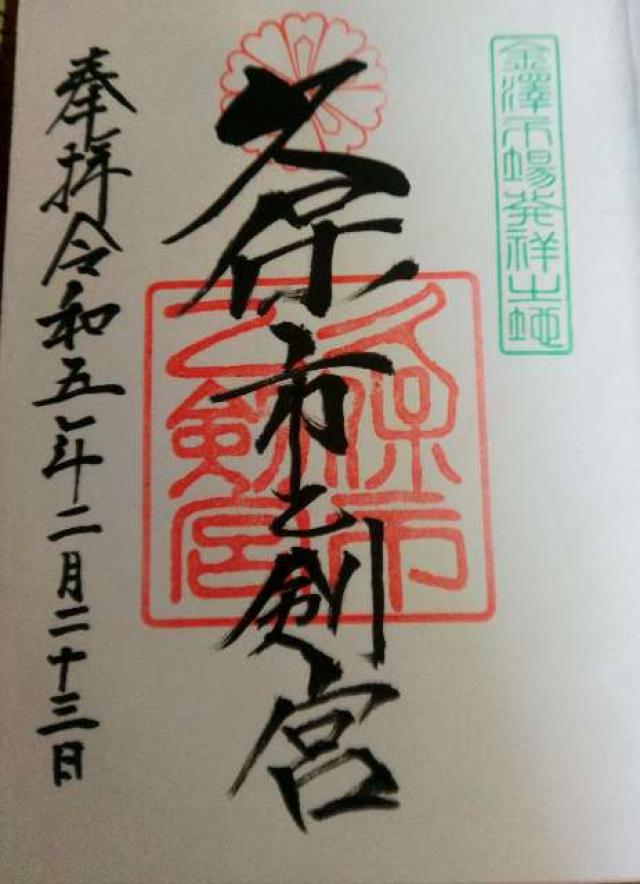 金澤市場発祥之地
久保市乙剣宮
久保市
乙剣宮
奉拝令和五年二月二十三日